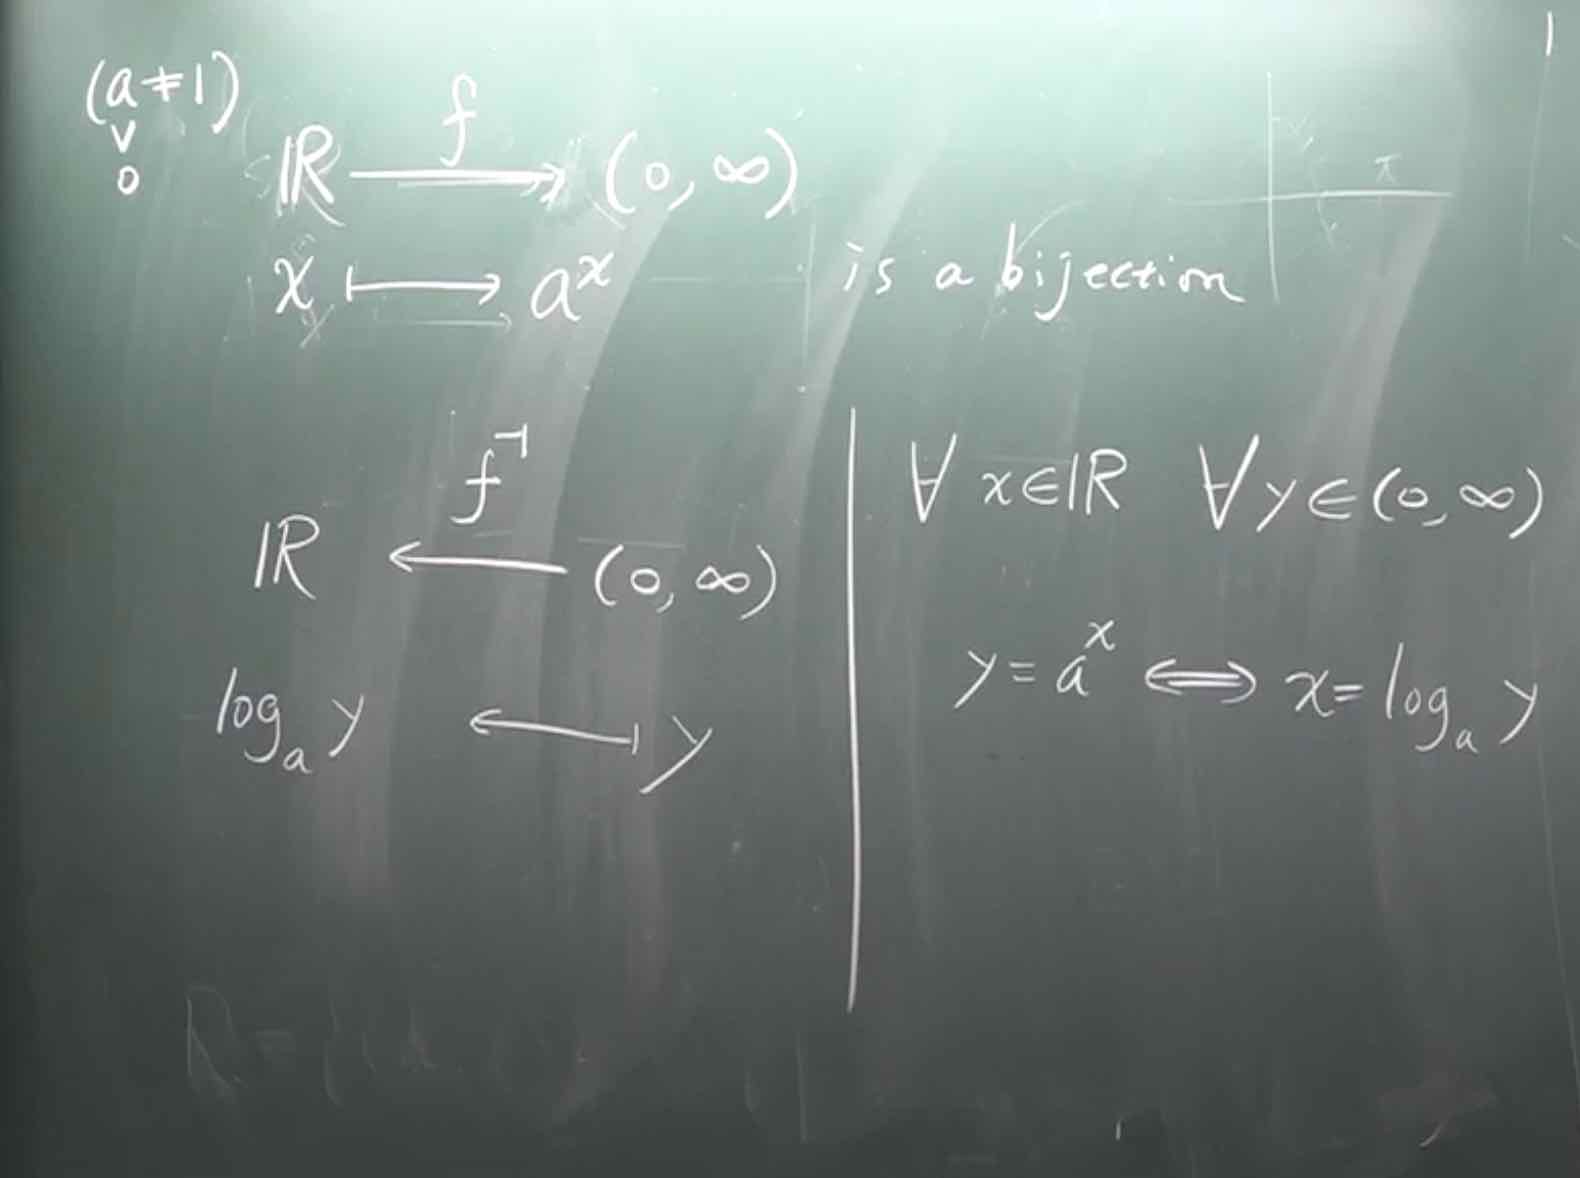 (a ≠ 1)
∨
0
ℝ —f→ (0, ∞)
x ⟼ aˣ is a bijection
f⁻¹
ℝ ⟵ (0, ∞)
logₐ y ⟻ y
∀ x ∈ ℝ ∀ y ∈ (0, ∞)
y = aˣ ⟺ x = logₐ y